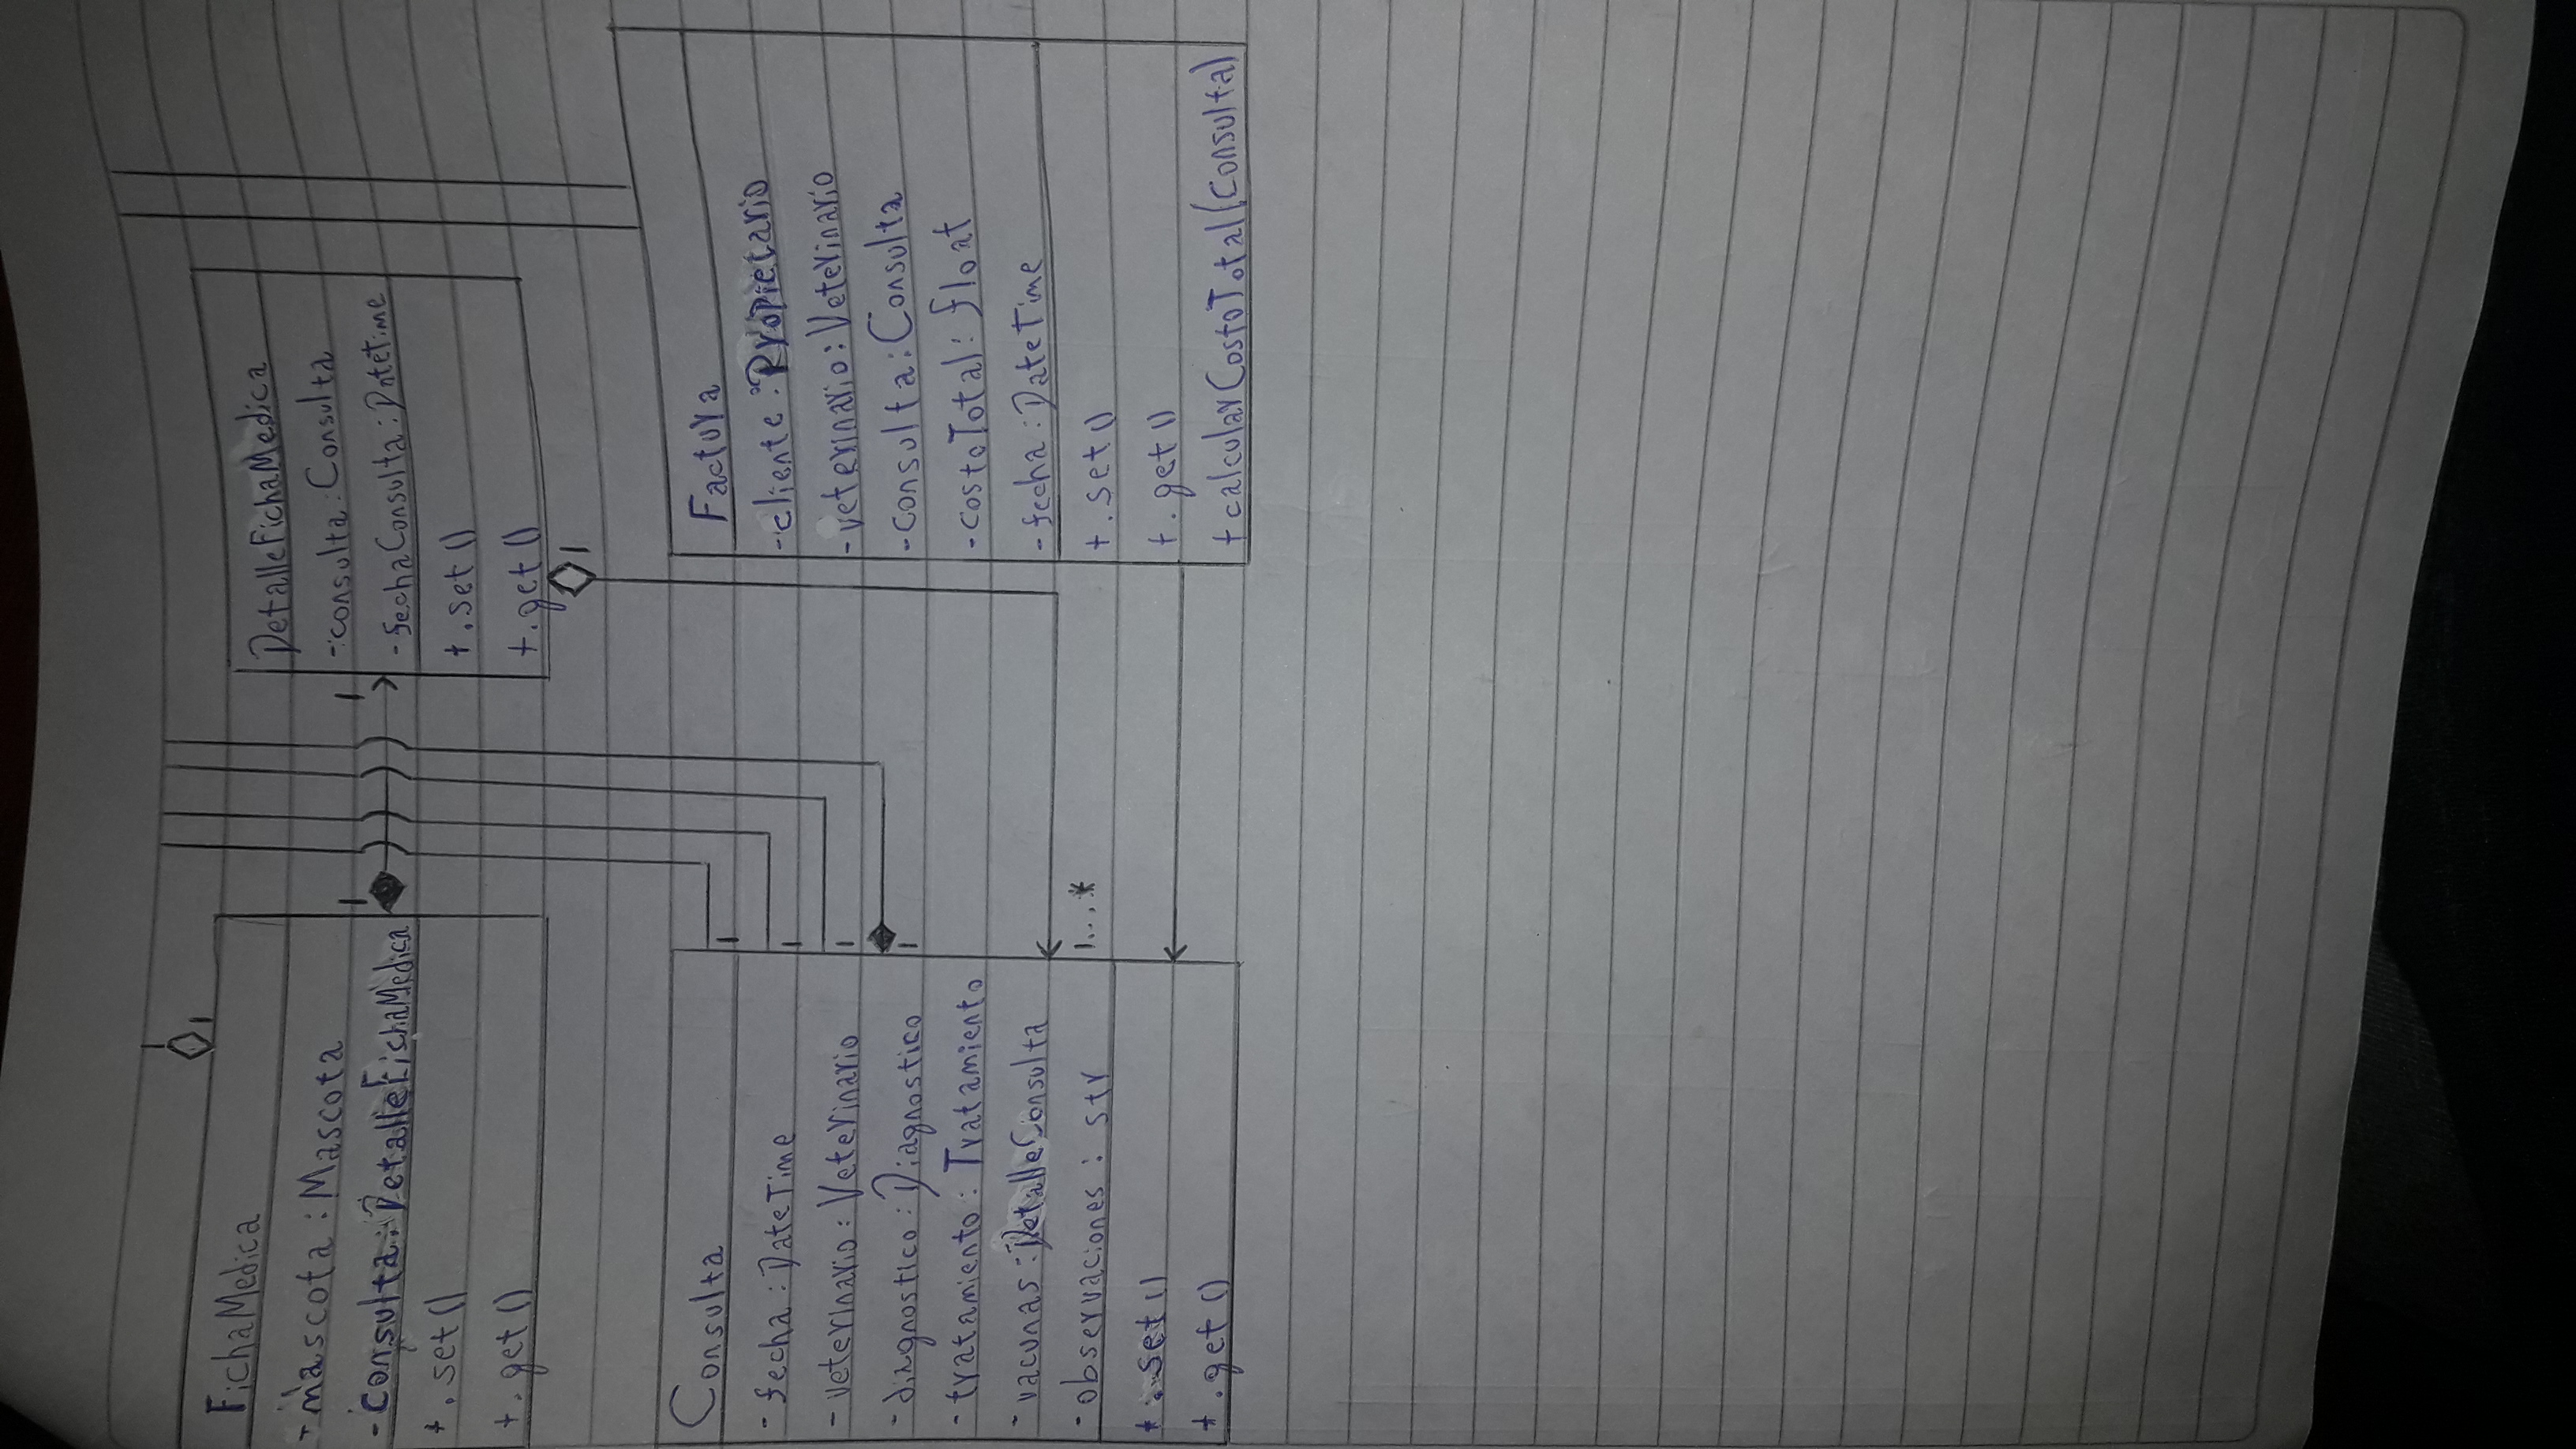 1
FichaMedica
- mascota : Mascota
- consulta : DetalleFichaMedica
+ . set ()
+ . get ()
1
1
DetalleFichaMedica
- consulta : Consulta
- fechaConsulta : DateTime
+ . set ()
+ . get ()
1
Consulta
- fecha : DateTime
- veterinario : Veterinario
- diagnostico : Diagnostico
- tratamiento : Tratamiento
- vacunas : DetalleConsulta
- observaciones : str
+ . set ()
+ . get ()
1
1
1
1
1...*
Factura
- cliente : Propietario
- veterinario : Veterinario
- consulta : Consulta
- costoTotal : float
- fecha : DateTime
+ . set ()
+ . get ()
+ calcularCostoTotal(Consulta)